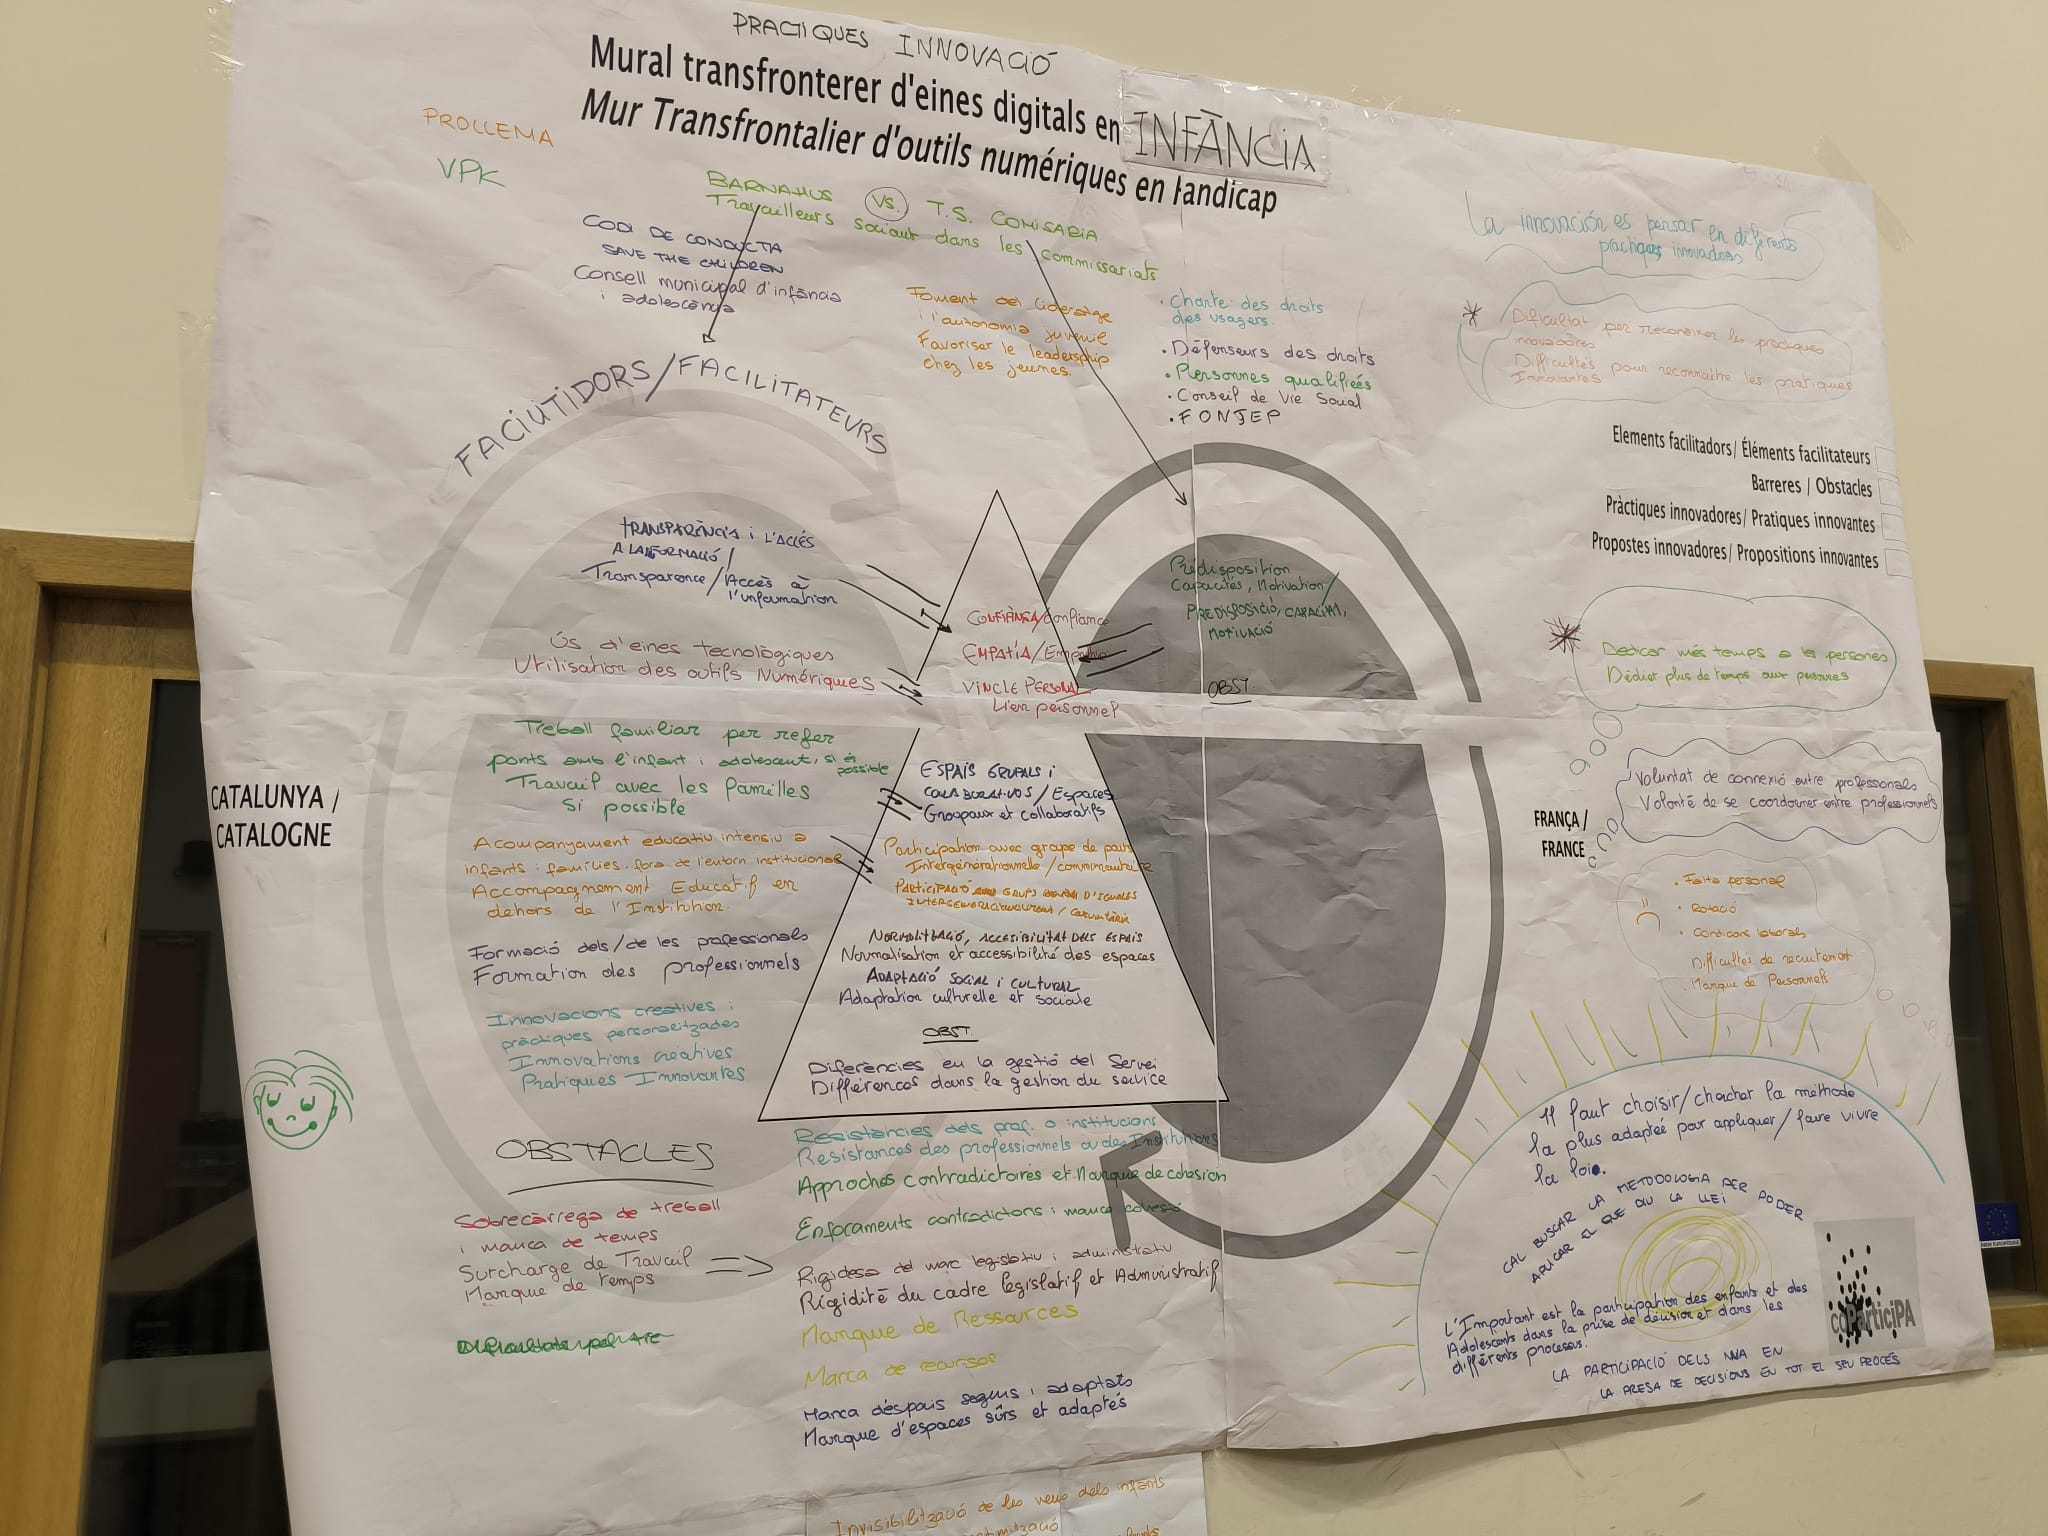 PRACTIQUES INNOVACIÓ
Mural transfronterer d'eines digitals en INFÀNCIA
Mur Transfrontalier d'outils numériques en handicap
PROLLEMA
VPK
BARNAHUS VS. T.S. COMISARIA
Travailleurs sociaux dans les commissariats
CODI DE CONDUCTA
SAVE THE CHILDREN
Consell municipal d'infància
i adolescència
Foment del lideratge
i l'autonomia juvenil
Favoriser le leadership
chez les jeunes.
• Charte des droits
des usagers.
• Défenseurs des droits
• Personnes qualifiées
• Conseil de Vie Social
• FONJEP
La innovación es pensar en diferents
practiques innovadors
Dificultat per reconeixer les pràctiques
innovadores
Difficultés pour reconnaitre les pratiques
Innovantes
Elements facilitadors/ Éléments facilitateurs
Barreres / Obstacles
Pràctiques innovadores/ Pratiques innovantes
Propostes innovadores/ Propositions innovantes
FACILITIDORS/FACILITATEURS
TRANSPARÈNCIA i L'ACCÉS
A LA INFORMACIÓ/
Transparence/Accès à
l'information
Ús d'eines tecnològiques
Utilisation des outils Numériques
Treball familiar per refer
ponts amb l'infant i adolescent, si és
possible
Travail avec les familles
si possible
Acompanyament educatiu intensiu a
infants i famílies, fora de l'entorn institucional
Accompagnement Educatif en
dehors de l'Institution.
Formació dels/de les professionals
Formation des professionnels
Innovacions creatives i
pràctiques personalitzades
Innovations créatives
Pratiques Innovantes
CATALUNYA /
CATALOGNE
CONFIANZA/Confiance
EMPATIA/Empathie
VINCLE PERSONAL
Lien personnel
ESPAIS GRUPALS i
COL·LABORATIUS / Espaces
Groupaux et collaboratifs
Participation avec groupe de pairs
Intergénérationnelle/communautaire
PARTICIPACIÓ AMB GRUPS D'IGUALS
Normalització, ACCESIBILITAT DELS ESPAIS
Normalisation et accessibilité des espaces
ADAPTACIÓ SOCIAL i CULTURAL
Adaptation culturelle et sociale
OBST.
Diferències en la gestió del Servei
Différences dans la gestion du service
Prédisposition
Capacités, Motivation/
PREDISPOSICIÓ, CAPACITAT,
MOTIVACIÓ
OBST.
Dedicar més temps a les persones
Dédier plus de temps aux personnes
Voluntat de connexió entre professionals
Volonté de se coordonner entre professionnels
FRANÇA /
FRANCE
• Falta personal
• Rotació
• Condicions laborals
Difficultés de recrutement
• Manque de Personnels
OBSTACLES
Sobrecàrrega de treball
i manca de temps
Surcharge de Travail
Manque de temps
Resistències dels prof. o institucions
Resistances des professionnels ou des Institutions
Approches contradictoires et Manque de cohésion
Enfocaments contradictoris i manca cohesió
Rigidesa del marc legislatiu i administratiu
Rigidité du cadre législatif et Administratif
Manque de Ressources
Manca de recursos
Manca d'espais segurs i adaptats
Manque d'espaces sûrs et adaptés
Invisibilització de les veus dels infants
Il faut choisir/chercher la méthode
la plus adaptée pour appliquer/faire vivre
la loi.
CAL BUSCAR LA METODOLOGIA PER PODER
APLICAR EL QUE DIU LA LLEI
L'Important est la participation des enfants et des
Adolescents dans la prise de décision et dans les
différents processus.
LA PARTICIPACIÓ DELS NNA EN
LA PRESA DE DECISIONS EN TOT EL SEU PROCÉS
coParticiPA